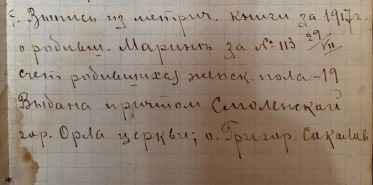 7. Выпись из метрич. книги за 1917 г.
о родивш. Маринѣ за № 113 29/VII
счет родившихся женск. пола - 19
Выдана причтом Смоленской
гор. Орла церкви; о. Григор. Сакалав